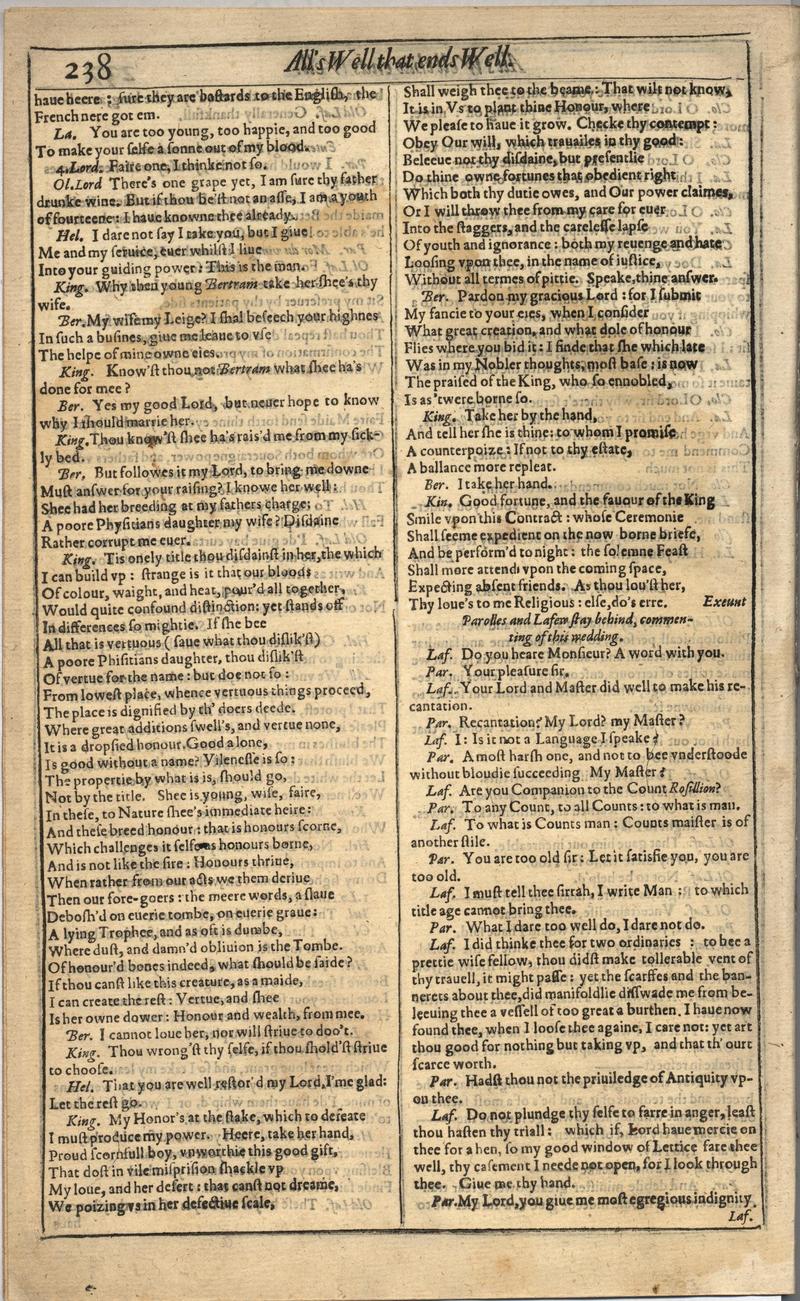 238
All's Well that ends Well.
haue heere : sure they are bastards to the English, the
French nere got em.
La. You are too young, too happie, and too good
To make your selfe a sonne out of my blood.
4.Lord. Faire one, I thinke not so.
Ol.Lord There's one grape yet, I am sure thy father
drunke wine. But if thou be'st not an asse, I am a youth
of fourteene: I haue knowne thee already.
Hel. I dare not say I take you, but I giue
Me and my seruice, euer whilst I liue
Into your guiding power: This is the man.
King. Why then young Bertram take her shee's thy
wife.
Ber. My wife my Leige? I shal beseech your highnes
In such a busines, giue me leaue to vse
The helpe of mine owne eies.
King. Know'st thou not Bertram what shee ha's
done for mee ?
Ber. Yes my good Lord, but neuer hope to know
why I should marrie her.
King. Thou know'st shee ha's rais'd me from my sick-
ly bed.
Ber. But followes it my Lord, to bring me downe
Must answer for your raising? I knowe her well :
Shee had her breeding at my fathers charge:
A poore Physitians daughter my wife? Disdaine
Rather corrupt me euer.
King. Tis onely title thou disdainst in her, the which
I can build vp : strange is it that our bloods
Of colour, waight, and heat, pour'd all together,
Would quite confound distinction: yet stands off
In differences so mightie. If she bee
All that is vertuous (saue what thou dislik'st)
A poore Phisitians daughter, thou dislik'st
Of vertue for the name: but doe not so :
From lowest place, whence vertuous things proceed,
The place is dignified by th' doers deede.
Where great additions swell's, and vertue none,
It is a dropsied honour. Good alone,
Is good without a name? Vilenesse is so :
The propertie by what is is, should go,
Not by the title. Shee is young, wise, faire,
In these, to Nature shee's immediate heire :
And these breed honour : that is honours scorne,
Which challenges it selfe as honours borne,
And is not like the sire : Honours thriue,
When rather from our acts we them deriue
Then our fore-goers : the meere words, a slaue
Debosh'd on euerie tombe, on euerie graue :
A lying Trophee, and as oft is dumbe,
Where dust, and damn'd obliuion is the Tombe.
Of honour'd bones indeed, what should be saide ?
If thou canst like this creature, as a maide,
I can create the rest : Vertue, and shee
Is her owne dower : Honour and wealth, from mee.
Ber. I cannot loue her, nor will striue to doo't.
King. Thou wrong'st thy selfe, if thou shold'st striue
to choose.
Hel. That you are well restor'd my Lord, I'me glad:
Let the rest go.
King. My Honor's at the stake, which to defeate
I must produce my power. Heere, take her hand,
Proud scornfull boy, vnworthie this good gift,
That dost in vile misprision shackle vp
My loue, and her desert : that canst not dreame,
We poizing vs in her defectiue scale,
Shall weigh thee to the beame : That wilt not know,
It is in Vs to plant thine Honour, where
We please to haue it grow. Checke thy contempt :
Obey Our will, which trauailes in thy good :
Beleeue not thy disdaine, but presentlie
Do thine owne fortunes that obedient right
Which both thy dutie owes, and Our power claimes,
Or I will throw thee from my care for euer
Into the staggers, and the carelesse lapse
Of youth and ignorance : both my reuenge and hate
Loosing vpon thee, in the name of iustice,
Without all termes of pittie. Speake, thine answer.
Ber. Pardon my gracious Lord : for I submit
My fancie to your eies, when I consider
What great creation, and what dole of honour
Flies where you bid it : I finde that she which late
Was in my Nobler thoughts, most base : is now
The praised of the King, who so ennobled,
Is as 'twere borne so.
King. Take her by the hand,
And tell her she is thine: to whom I promise
A counterpoize : If not to thy estate,
A ballance more repleat.
Ber. I take her hand.
Kin. Good fortune, and the fauour of the King
Smile vpon this Contract : whose Ceremonie
Shall seeme expedient on the now borne briefe,
And be perform'd to night : the solemne Feast
Shall more attend vpon the coming space,
Expecting absent friends. As thou lou'st her,
Thy loue's to me Religious : else, do's erre. Exeunt
Parolles and Lafew stay behind, commen-
ting of this wedding.
Laf. Do you heare Monsieur? A word with you.
Par. Your pleasure sir.
Laf. Your Lord and Master did well to make his re-
cantation.
Par. Recantation? My Lord? my Master ?
Laf. I : Is it not a Language I speake ?
Par. A most harsh one, and not to bee vnderstoode
without bloudie succeeding. My Master ?
Laf. Are you Companion to the Count Rosillion?
Par. To any Count, to all Counts : to what is man.
Laf. To what is Counts man : Counts maister is of
another stile.
Par. You are too old sir : Let it satisfie you, you are
too old.
Laf. I must tell thee sirrah, I write Man : to which
title age cannot bring thee.
Par. What I dare too well do, I dare not do.
Laf. I did thinke thee for two ordinaries : to bee a
prettie wise fellow, thou didst make tollerable vent of
thy trauell, it might passe : yet the scarffes and the ban-
nerets about thee, did manifoldlie disswade me from be-
leeuing thee a vessell of too great a burthen. I haue now
found thee, when I loose thee againe, I care not: yet art
thou good for nothing but taking vp, and that th'ourt
scarce worth.
Par. Hadst thou not the priuiledge of Antiquity vp-
on thee.
Laf. Do not plundge thy selfe to farre in anger, least
thou hasten thy triall : which if, Lord haue mercie on
thee for a hen, so my good window of Lettice fare thee
well, thy casement I neede not open, for I look through
thee. Giue me thy hand.
Par. My Lord, you giue me most egregious indignity.
Laf.